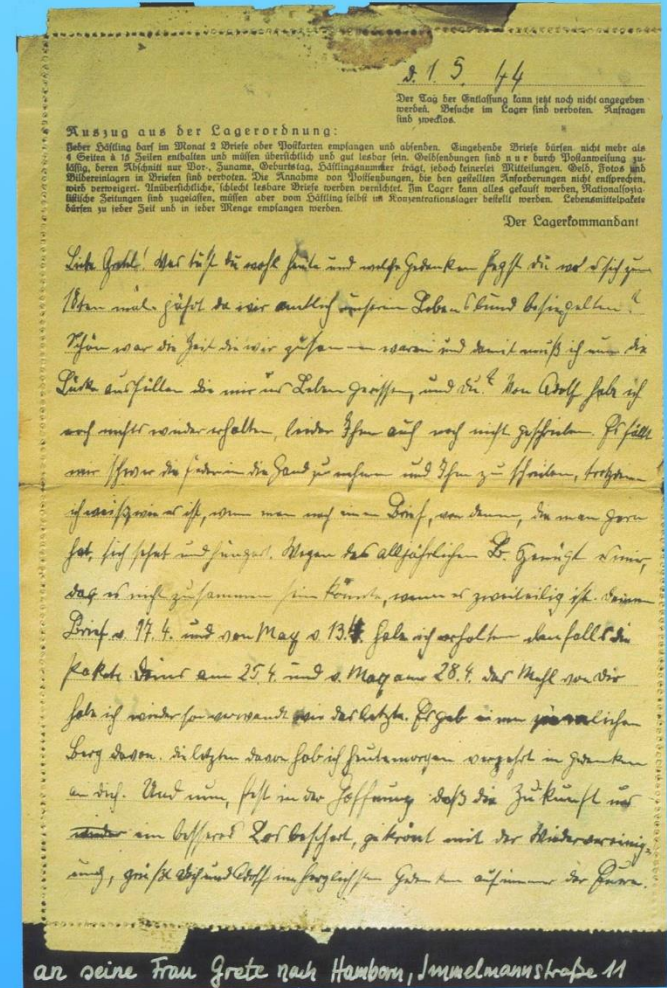 d. 1. 5. 44
Der Tag der Entlassung kann jetzt noch nicht angegeben
werden. Besuche im Lager sind verboten. Anfragen
sind zwecklos.
Auszug aus der Lagerordnung:
Jeder Häftling darf im Monat 2 Briefe oder Postkarten empfangen und absenden. Eingehende Briefe dürfen nicht mehr als
4 Seiten à 15 Zeilen enthalten und müssen übersichtlich und gut lesbar sein. Geldsendungen sind nur durch Postanweisung zu-
lässig, deren Abschnitt nur Vor-, Zuname, Geburtstag, Häftlingsnummer trägt, jedoch keinerlei Mitteilungen. Geld, Fotos und
Bildereinlagen in Briefen sind verboten. Die Annahme von Postsendungen, die den gestellten Anforderungen nicht entsprechen,
wird verweigert. Unübersichtliche, schlecht lesbare Briefe werden vernichtet. Im Lager kann alles gekauft werden. Nationalsozia-
listische Zeitungen sind zugelassen, müssen aber vom Häftling selbst im Konzentrationslager bestellt werden. Lebensmittelpakete
dürfen zu jeder Zeit und in jeder Menge empfangen werden.
Der Lagerkommandant
Liebe Gretel! Was tust du wohl heute und welche Gedanken hegst du wo es sich zum
18ten male jährt da wir amtlich unseren Lebensbund besiegelten?
Schön war die Zeit die wir zusammen waren und damit muß ich nun die
Lücke ausfüllen die mir ins Leben gerissen, und du? Von Adolf habe ich
noch nichts wieder erhalten, leider Ihm auch noch nicht geschrieben. Es fällt
mir schwer die Feder in die Hand zu nehmen und Ihm zu schreiben, trotzdem
ich weiß wie es ist, wenn man nach einem Brief, von denen, die man gern
hat, sich sehnt und hungert. Wegen des alljährlichen B. genügt es mir,
daß es nicht zusammen sein könnte, wenn es zweiteilig ist. Deinen
Brief v. 17.4. und von May v 13.4. habe ich erhalten ebenfalls die
Pakete. Deins am 25.4. und v. May am 28.4. das Mehl von Dir
habe ich wieder so verwandt wie das letzte. Es gab einen ziemlichen
Berg davon. die letzten davon hab ich heutemorgen verzehrt in Gedanken
an dich. Und nun, fest in der Hoffnung daß die Zukunft uns
wieder ein besseres Los beschert, gekrönt mit der Wiedervereinig-
ung, grüßt dich und Adolf im herzlichsten Gedenken auf immer der Eure.
an seine Frau Grete nach Hamborn, Immelmannstraße 11